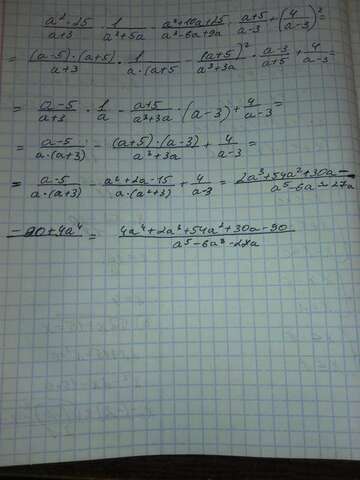 a² - 25 / a+3 · 1 / a²+5a - a²+10a+25 / a²-6a+9a : a+5 / a-3 + (4 / a-3)² =
= (a-5)·(a+5) / a+3 · 1 / a·(a+5 - (a+5)² / a²+3a · a-3 / a+5 + 4 / a-3 =
= a-5 / a+3 · 1 / a - a+5 / a²+3a · (a-3) + 4 / a-3 =
= a-5 / a·(a+3) - (a+5)·(a-3) / a²+3a + 4 / a-3 =
= a-5 / a·(a+3) - a²+2a-15 / a·(a²+3) + 4 / a-3 = 2a³+54a²+30a- / a⁵-6a³-27a
-90+4a⁴ = 4a⁴+2a³+54a²+30a-90 / a⁵-6a³-27a